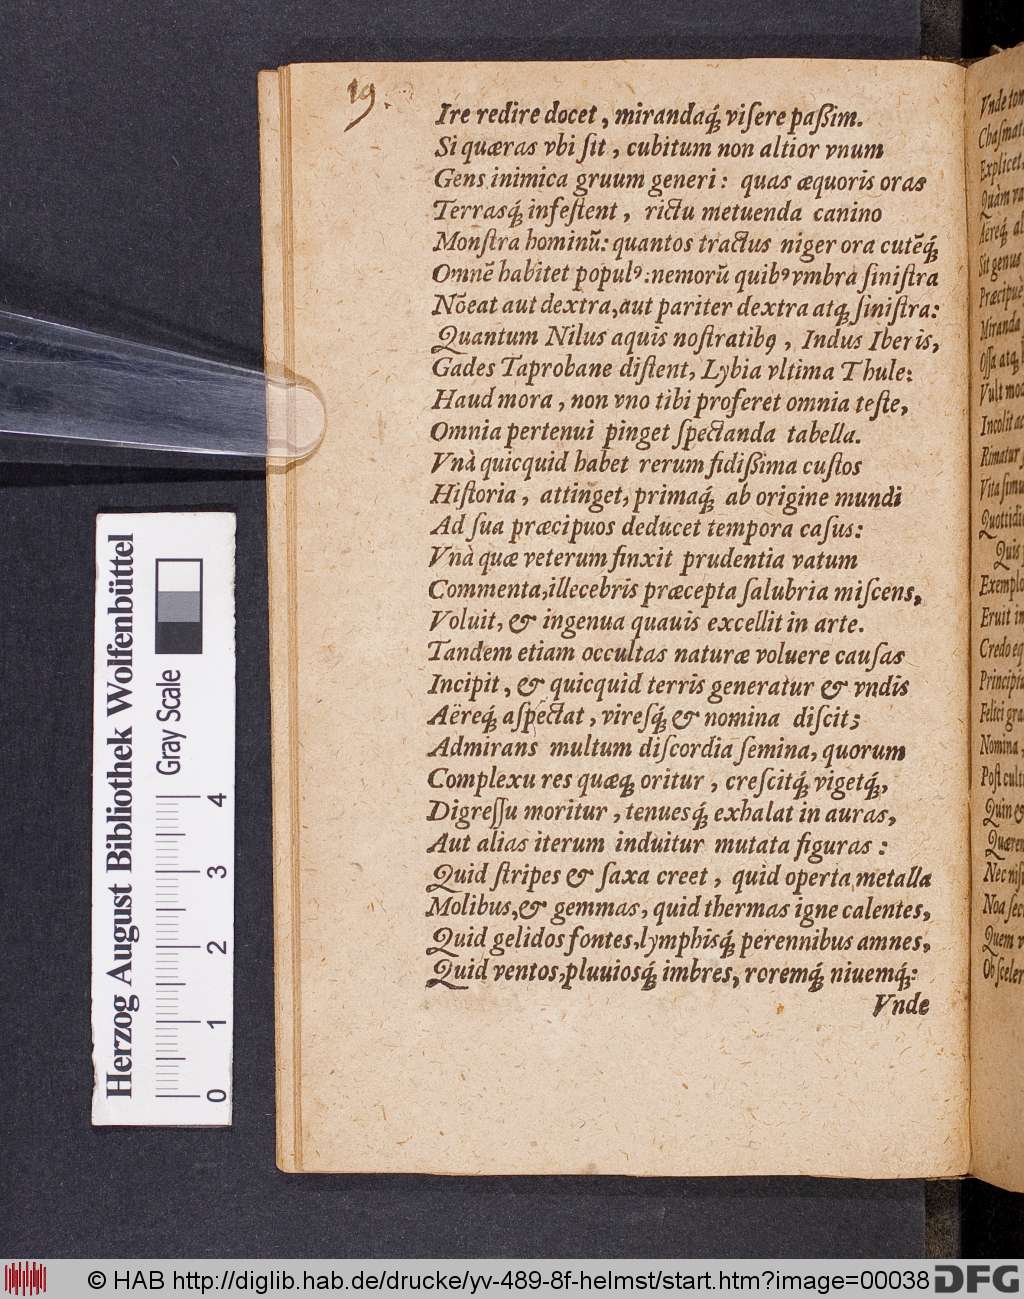 19.
Ire redire docet, mirandaq́; viſere paßim.
Si quæras vbi ſit, cubitum non altior vnum
Gens inimica gruum generi: quas æquoris oras
Terrasq́; infeſtent, rictu metuenda canino
Monſtra hominũ: quantos tractus niger ora cutẽq́;
Omnẽ habitet populꝰ: nemorũ quibꝰ vmbra ſiniſtra
Nõeat aut dextra, aut pariter dextra atq; ſiniſtra:
Quantum Nilus aquis noſtratibꝰ, Indus Iberis,
Gades Taprobane diſtent, Lybia vltima Thule:
Haud mora, non vno tibi proferet omnia teſte,
Omnia pertenui pinget ſpectanda tabella.
Vnà quicquid habet rerum fidißima cuſtos
Hiſtoria, attinget, primaq́; ab origine mundi
Ad ſua præcipuos deducet tempora caſus:
Vnà quæ veterum finxit prudentia vatum
Commenta, illecebris præcepta ſalubria miſcens,
Voluit, & ingenua quauis excellit in arte.
Tandem etiam occultas naturæ voluere cauſas
Incipit, & quicquid terris generatur & vndis
Aëreq́; aſpectat, viresq́; & nomina diſcit;
Admirans multum diſcordia ſemina, quorum
Complexu res quæq; oritur, creſcitq́; vigetq́;,
Digreſſu moritur, tenuesq́; exhalat in auras,
Aut alias iterum induitur mutata figuras:
Quid ſtripes & ſaxa creet, quid operta metalla
Molibus, & gemmas, quid thermas igne calentes,
Quid gelidos fontes, lymphisq́; perennibus amnes,
Quid ventos, pluuiosq́; imbres, roremq́; niuemq́;:
Vnde
Vnde
Explicet,
Quàm
Aëreq́;
Sit genus
Miranda
Oſſa atq;
Vult
Incolit
Rimatur
Vita
Quis
Eruit
Credo
Nomina,
Poſt
Quin &
Nec
Noa
Quem
Ob
Herzog August Bibliothek Wolfenbüttel
Gray Scale
0 1 2 3 4
© HAB http://diglib.hab.de/drucke/yv-489-8f-helmst/start.htm?image=00038
DFG